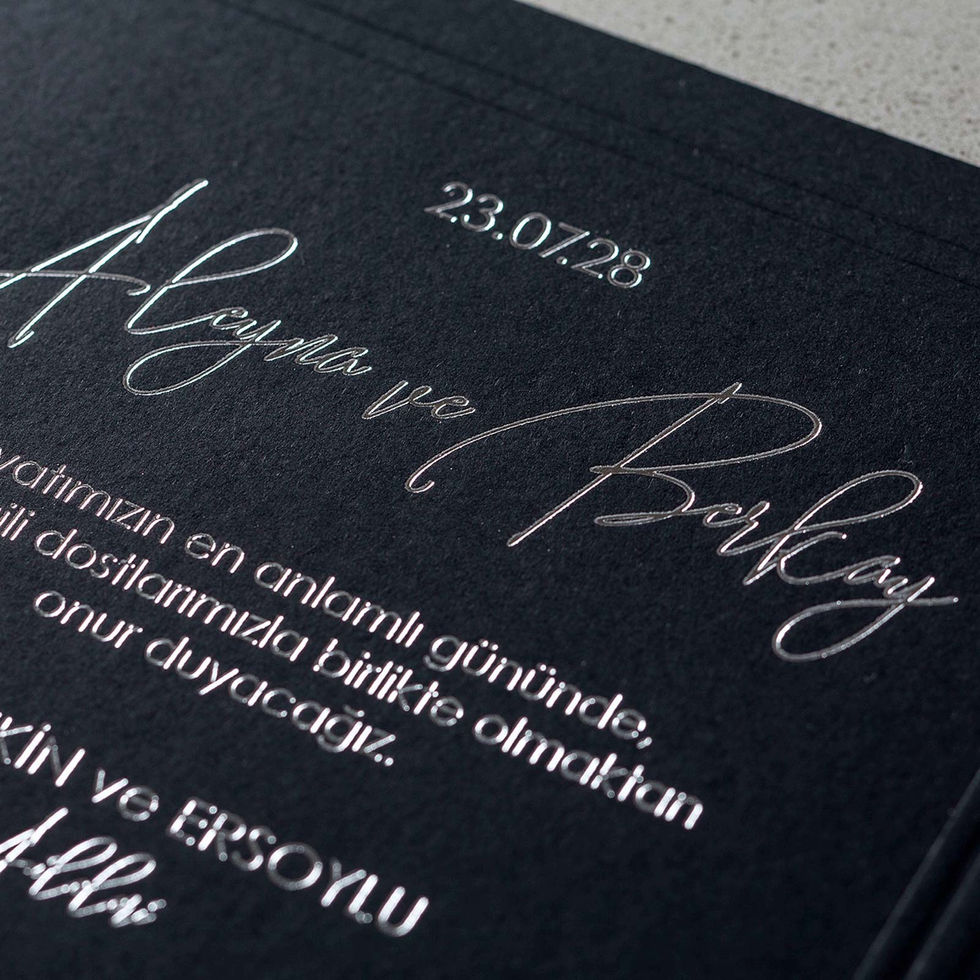 23.07.28
Aleyna ve Berkay
en anlamlı gününde,
dostlarımızla birlikte olmaktan
onur duyacağız..
ve ERSOYLU